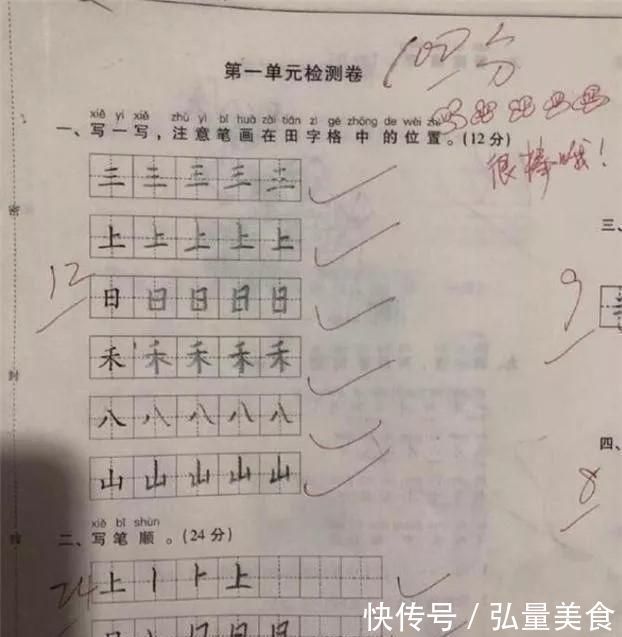 第一单元检测卷
100分
xiě yi xiě zhù yì bǐ huà zài tián zì gé zhōng de wèi zhi
一、写一写，注意笔画在田字格中的位置。(12分)
很棒哦！
三 三 三 三 三
上 上 上 上 上
12
日 日 日 日 日
禾 禾 禾 禾 禾
八 八 八 八 八
山 山 山 山 山
xiě bǐ shùn
二、写笔顺。(24分)
24
上 丨 卜 上
三、
9
四、
8
密
封
线
快传号 / 弘量美食